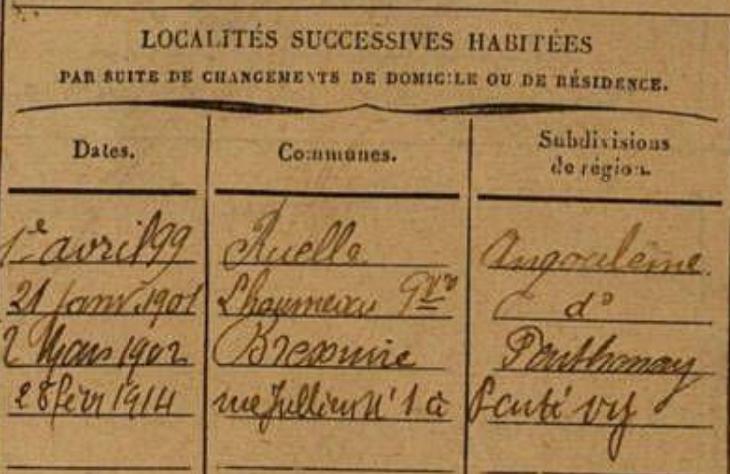 LOCALITÉS SUCCESSIVES HABITÉES
PAR SUITE DE CHANGEMENTS DE DOMICILE OU DE RÉSIDENCE.
Dates. Communes. Subdivisions de région.
1e avril 99 Ruelle Angoulême
21 janv. 1901 Lhoumeau do
2 Mars 1902 Bressuire Parthenay
28 févr 1914 rue Jullien No 1 à